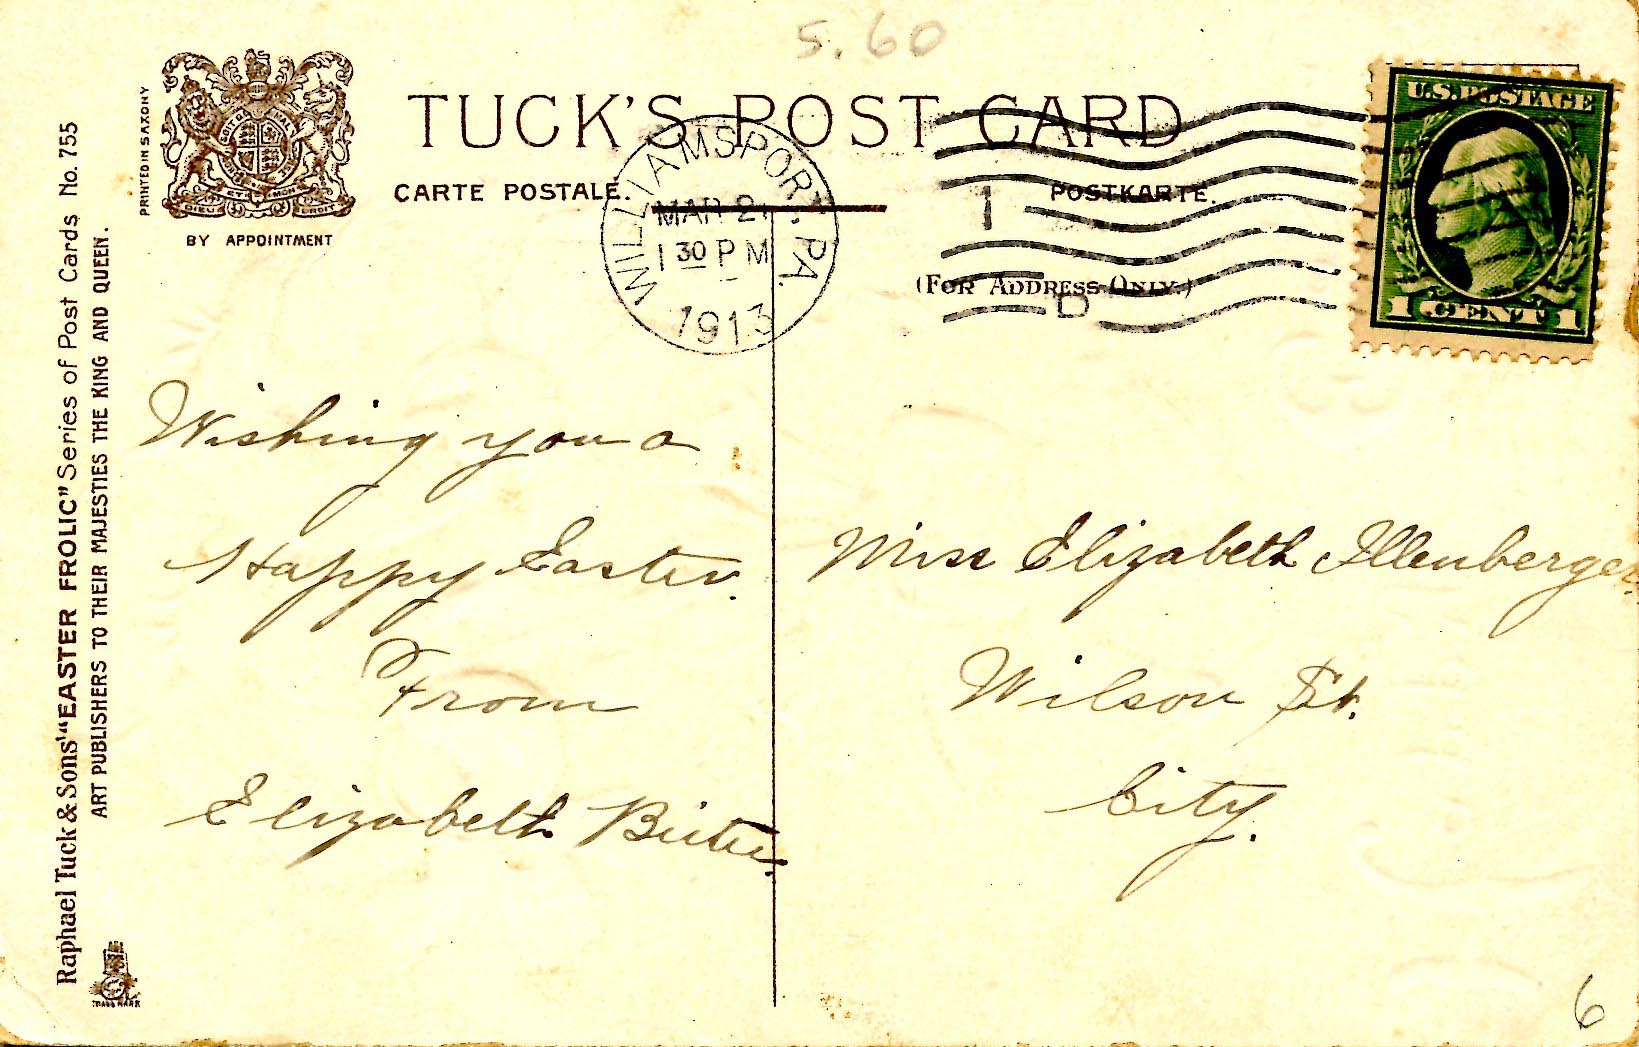 5.60
TUCK'S POST CARD
CARTE POSTALE.
POSTKARTE.
(FOR ADDRESS ONLY.)
PRINTED IN SAXONY
BY APPOINTMENT
WILLIAMSPORT, PA.
MAR 21
1 30 PM
1913
1
D
U.S. POSTAGE
1 CENT 1
Raphael Tuck & Sons' "EASTER FROLIC" Series of Post Cards No. 755
ART PUBLISHERS TO THEIR MAJESTIES THE KING AND QUEEN.
TRADE MARK
Wishing you a
Happy Easter.
From
Elizabeth
Miss Elizabeth Illenberger
Wilson St.
City.
6